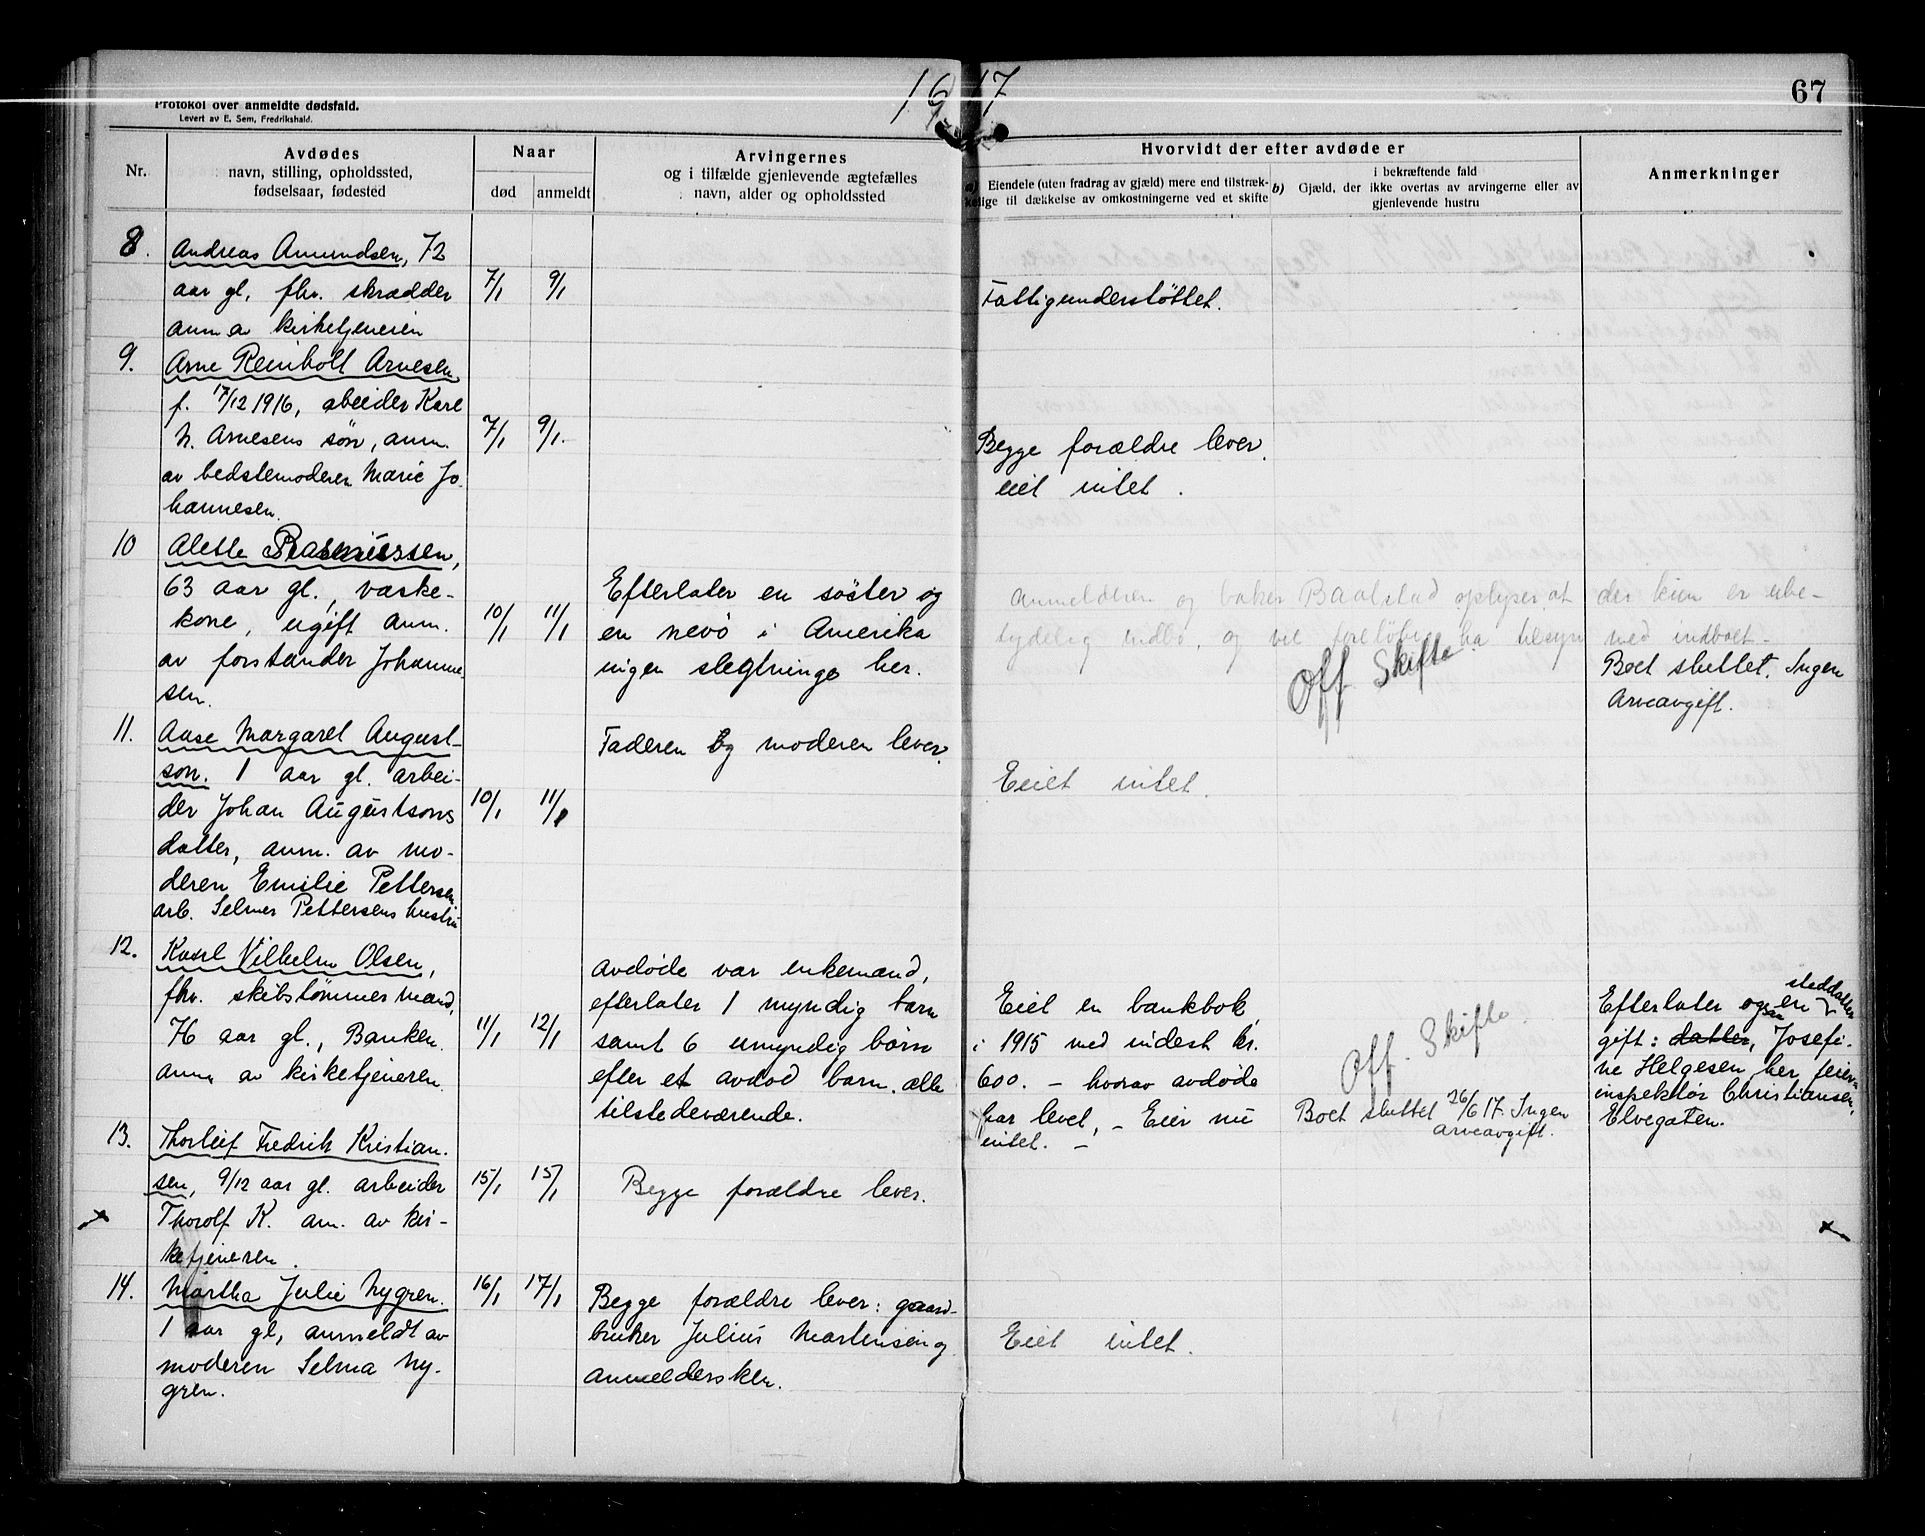 1917
67
Protokol over anmeldte dødsfald.
Levert av E. Sem, Fredrikshald.
Nr.
Avdødes
navn, stilling, opholdssted,
fødselsaar, fødested
Naar
død
anmeldt
Arvingernes
og i tilfælde gjenlevende ægtefælles
navn, alder og opholdssted
Hvorvidt der efter avdøde er
a) Eiendele (uten fradrag av gjæld) mere end tilstræk-
kelige til dækkelse av omkostningerne ved et skifte
i bekræftende fald
b) Gjæld, der ikke overtas av arvingerne eller av
gjenlevende hustru
Anmerkninger
8. Andreas Amundsen, 72
aar gl. fhv. skrædder
anm av kirketjeneren
7/1 9/1
Fattigunderstöttet.
9. Arne Reinholt Arnesen
f. 17/12 1916, abeider Karl
N. Arnesens sön, anm.
av bedstemoderen Marie Jo
hannesen.
7/1 9/1.
Begge forældre lever.
eiet intet.
10 Alette Rasmussen,
63 aar gl., vaske-
kone, ugift anm.
av forstander Johanne-
sen.
10/1 11/1
Efterlater en söster og
en nevö i Amerika
ingen slegtninge her.
Anmelderen og baker Baalstad oplyser at der kun er ube-
tydelig indbo, og vil foreløbig ha tilsyn med indboet-
Off. Skifte
Boet sluttet. Ingen
Arveavgift.
11. Aase Margaret August-
son. 1 aar gl. arbei-
der Johan Augustsons
datter, anm. av mo-
deren Emilie Pettersen
arb. Selmer Pettersens hustru
10/1 11/1
Faderen og moderen lever.
Eiet intet.
12. Karl Vilhelm Olsen,
fhv. skibstömmermand,
76 aar gl., Banken.
anm av kirketjeneren.
11/1 12/1
Avdöde var enkemand,
efterlater 1 myndig barn
samt 6 umyndig börn
efter et avdöd barn. alle
tilstedeværende.
Eiet en bankbok
i 1915 med indest kr.
600. - hvorav avdöde
har levet, - Eier nu
intet. -
Off. Skifte.
Boet sluttet 26/6 17. Ingen
arveavgift.
steddatter
Efterlater og en
gift: datter, Josefi-
ne Helgesen, her feier-
inspektör Christiansen,
Elvegaten.
13. Thorleif Fredrik Kristian-
sen, 9/12 aar gl. arbeider
Thorolf K. am. av kir-
ketjeneren.
15/1 15/1
Begge forældre lever.
14. Martha Julie Nygren.
1 aar gl, anmeldt av
moderen Selma Ny-
gren.
16/1 17/1
Begge forældre lever: gaard-
bruker Julius Martinsen og
Anmeldersken.
Eiet intet.